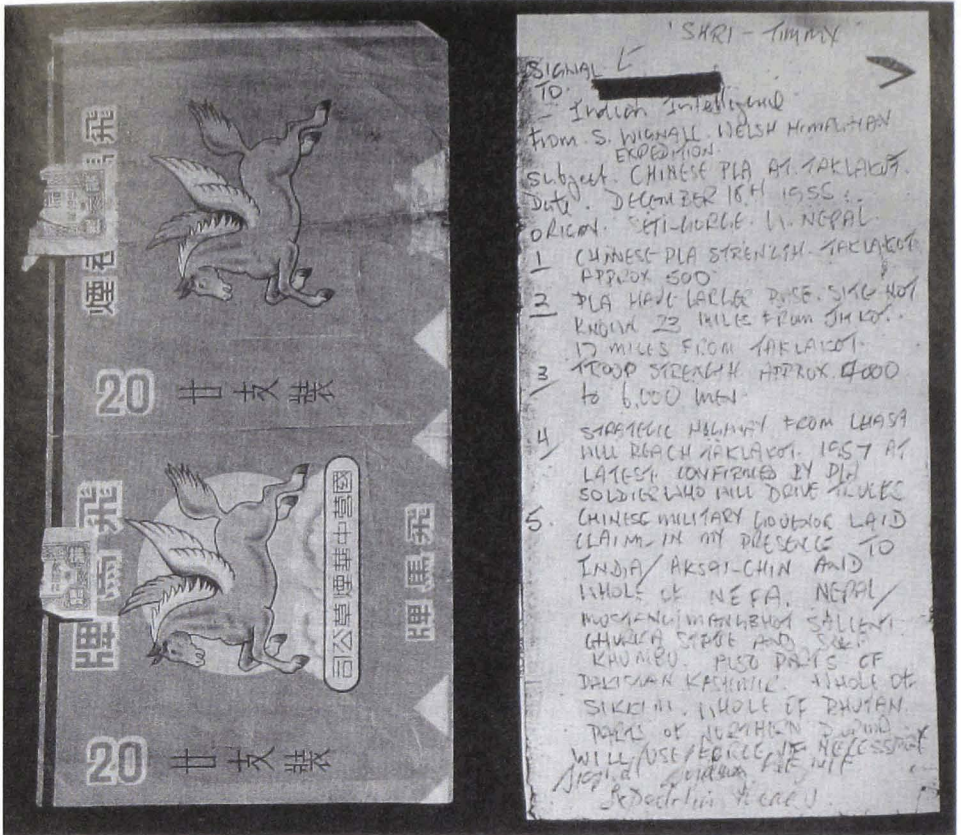 飛馬煙
20 廿支裝
飛馬牌
國營中華煙草公司
飛馬牌
20 廿支裝
'SHRI - TIMMY'
SIGNAL
TO
- Indian Intelligence
From S. WIGNALL. WELSH HIMALAYAN
EXPEDITION.
Subject. CHINESE PLA AT. TAKLAKOT.
Date. DECEMBER 18TH 1955.
ORIGIN. SETI-GORGE. NEPAL
1 CHINESE PLA STRENGTH. TAKLAKOT.
APPROX 500
2 PLA HAVE LARGER BASE. SITE NOT
KNOWN 23 MILES FROM
17 MILES FROM TAKLAKOT.
3 TROOP STRENGTH APPROX. 4000
to 6,000 MEN.
4 STRATEGIC HIGHWAY FROM LHASA
WILL REACH TAKLAKOT. 1957 AT
LATEST. CONFIRMED BY PLA
SOLDIER WHO WILL DRIVE TRUCKS
5. CHINESE MILITARY GOVENOR LAID
CLAIM IN MY PRESENCE TO
INDIA/ AKSAI-CHIN AND
WHOLE OF NEFA. NEPAL/
MUSTANG/ SALIENT
STATE AND
KHUMBU. ALSO PARTS OF
KASHMIR. WHOLE OF
SIKKIM. WHOLE OF BHUTAN.
PARTS OF NORTHERN BURMA
WILL/USE/FORCE/IF NECESSARY